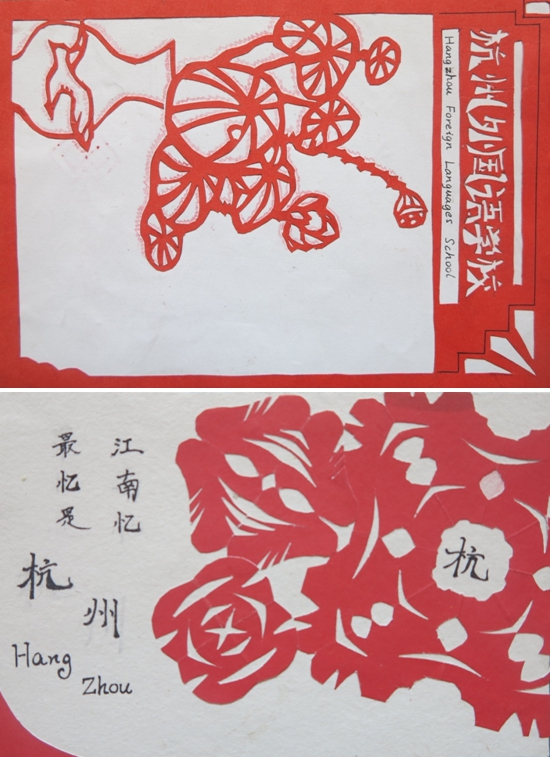 杭州外国语学校
Hangzhou Foreign Languages School
江南忆
最忆是
杭
州
Hang
Zhou
杭